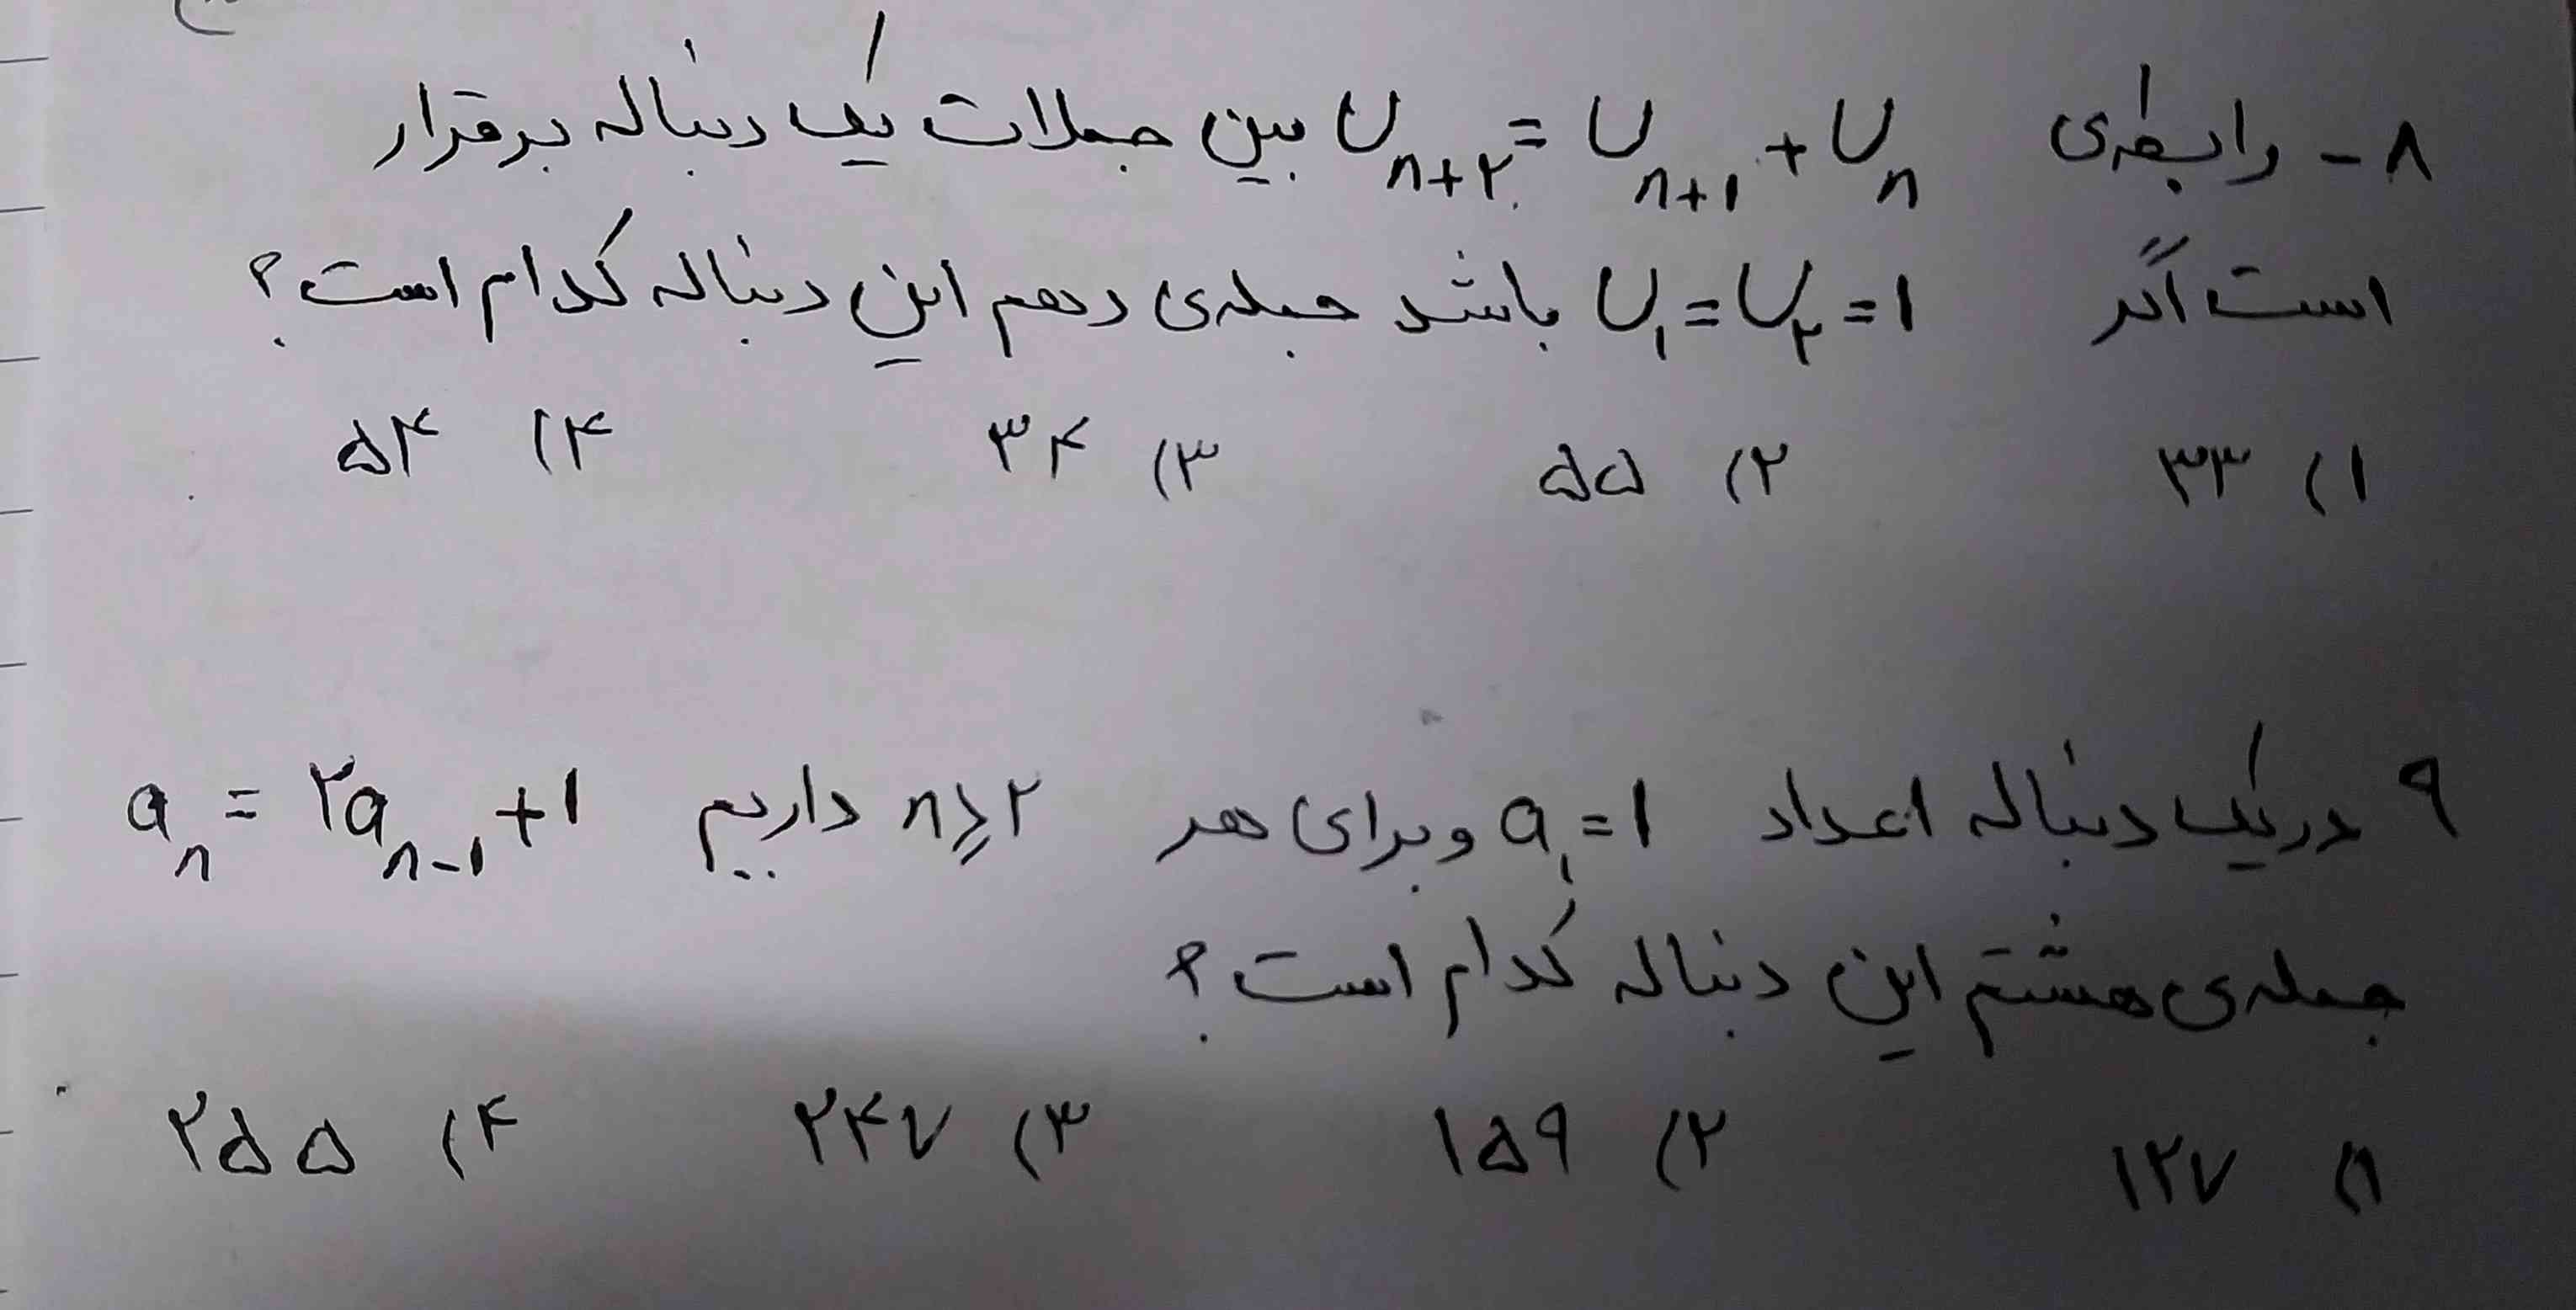 ۸- رابطه‌ی U_{n+۲} = U_{n+۱} + U_n بین جملات یک دنباله برقرار
است اگر U_۱ = U_۲ = ۱ باشد جمله‌ی دهم این دنباله کدام است؟
۱) ۳۳ ۲) ۵۵ ۳) ۳۴ ۴) ۵۴
۹ در یک دنباله اعداد a_۱ = ۱ و برای هر n ≥ ۲ داریم a_n = ۲a_{n-۱} + ۱
جمله‌ی هشتم این دنباله کدام است؟
۱) ۱۲۷ ۲) ۱۵۹ ۳) ۲۴۷ ۴) ۲۵۵